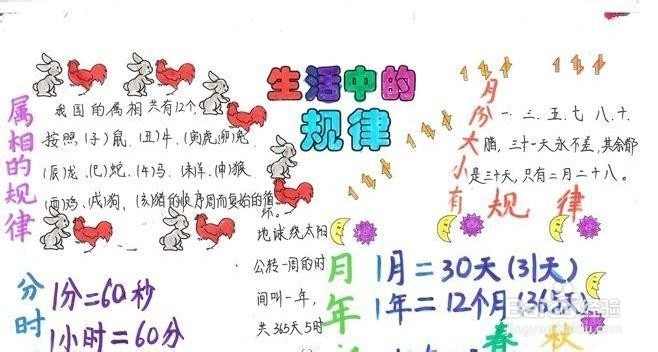 生活中的
规律
属相的规律
我国的属相共有12个,
按照,(子)鼠,(丑)牛,(寅)虎,(卯)兔,
(辰)龙,(巳)蛇,(午)马,(未)羊,(申)猴,
(酉)鸡,(戌)狗,(亥)猪的顺序周而复始的循
环.
月份大小有
规律
一.三.五.七.八.十.
腊,三十一天永不差,其余都
是三十天,只有二月二十八。
分时
1分=60秒
1小时=60分
地球绕太阳
公转一周的时
间叫一年,
共365天5时
月年
1月=30天(31天)
1年=12个月(365天)
春 秋